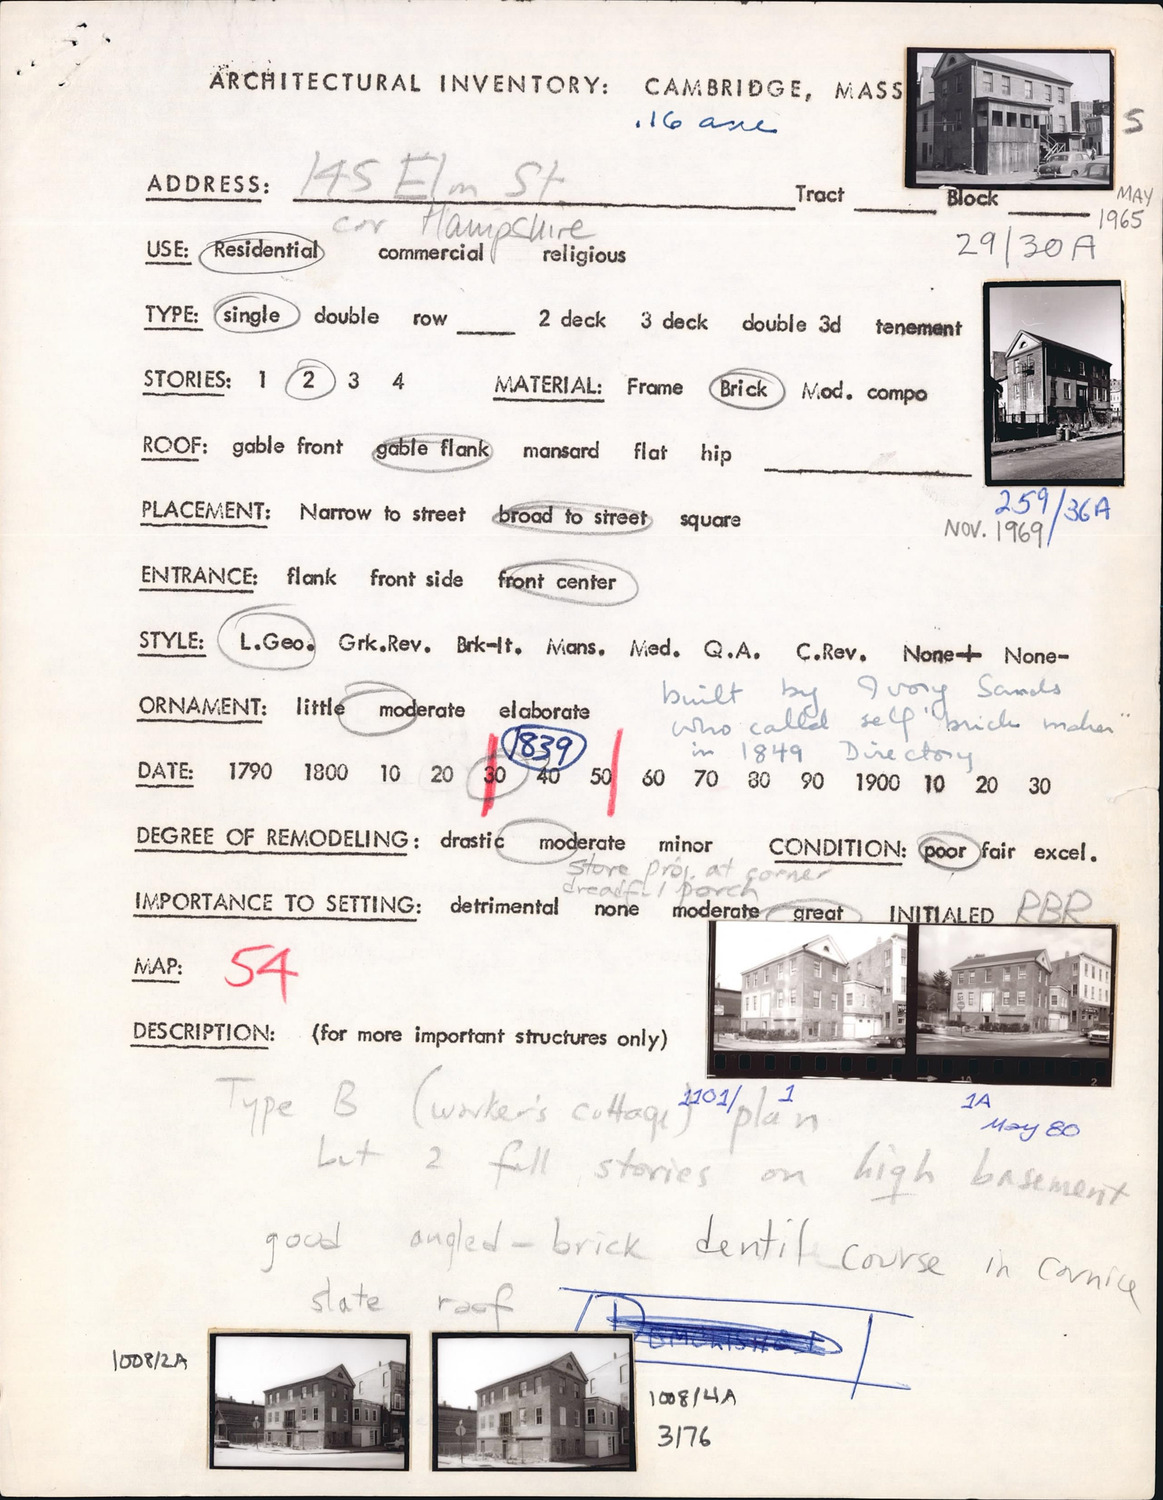 ARCHITECTURAL INVENTORY: CAMBRIDGE, MASS
.16 acre
S
ADDRESS: 145 Elm St. Tract ____ Block ____
cor Hampshire
MAY 1965
29/30A
USE: Residential commercial religious
TYPE: single double row ____ 2 deck 3 deck double 3d tenement
STORIES: 1 2 3 4 MATERIAL: Frame Brick Mod. compo
ROOF: gable front gable flank mansard flat hip ____
PLACEMENT: Narrow to street broad to street square
259/36A
NOV. 1969
ENTRANCE: flank front side front center
STYLE: L.Geo. Grk.Rev. Brk-It. Mans. Med. Q.A. C.Rev. None+ None-
ORNAMENT: little moderate elaborate
built by Ivory Sands
who called self "brick maker"
in 1849 Directory
1839
DATE: 1790 1800 10 20 30 40 50 60 70 80 90 1900 10 20 30
DEGREE OF REMODELING: drastic moderate minor CONDITION: poor fair excel.
store proj. at corner
dreadful porch
IMPORTANCE TO SETTING: detrimental none moderate great INITIALED RBR
MAP: 54
DESCRIPTION: (for more important structures only)
1101/ 1 1A
May 80
Type B (worker's cottage) plan
but 2 full stories on high basement
good angled-brick dentil course in cornice
slate roof
DEMOLISHED
1008/2A
1008/4A
3/76